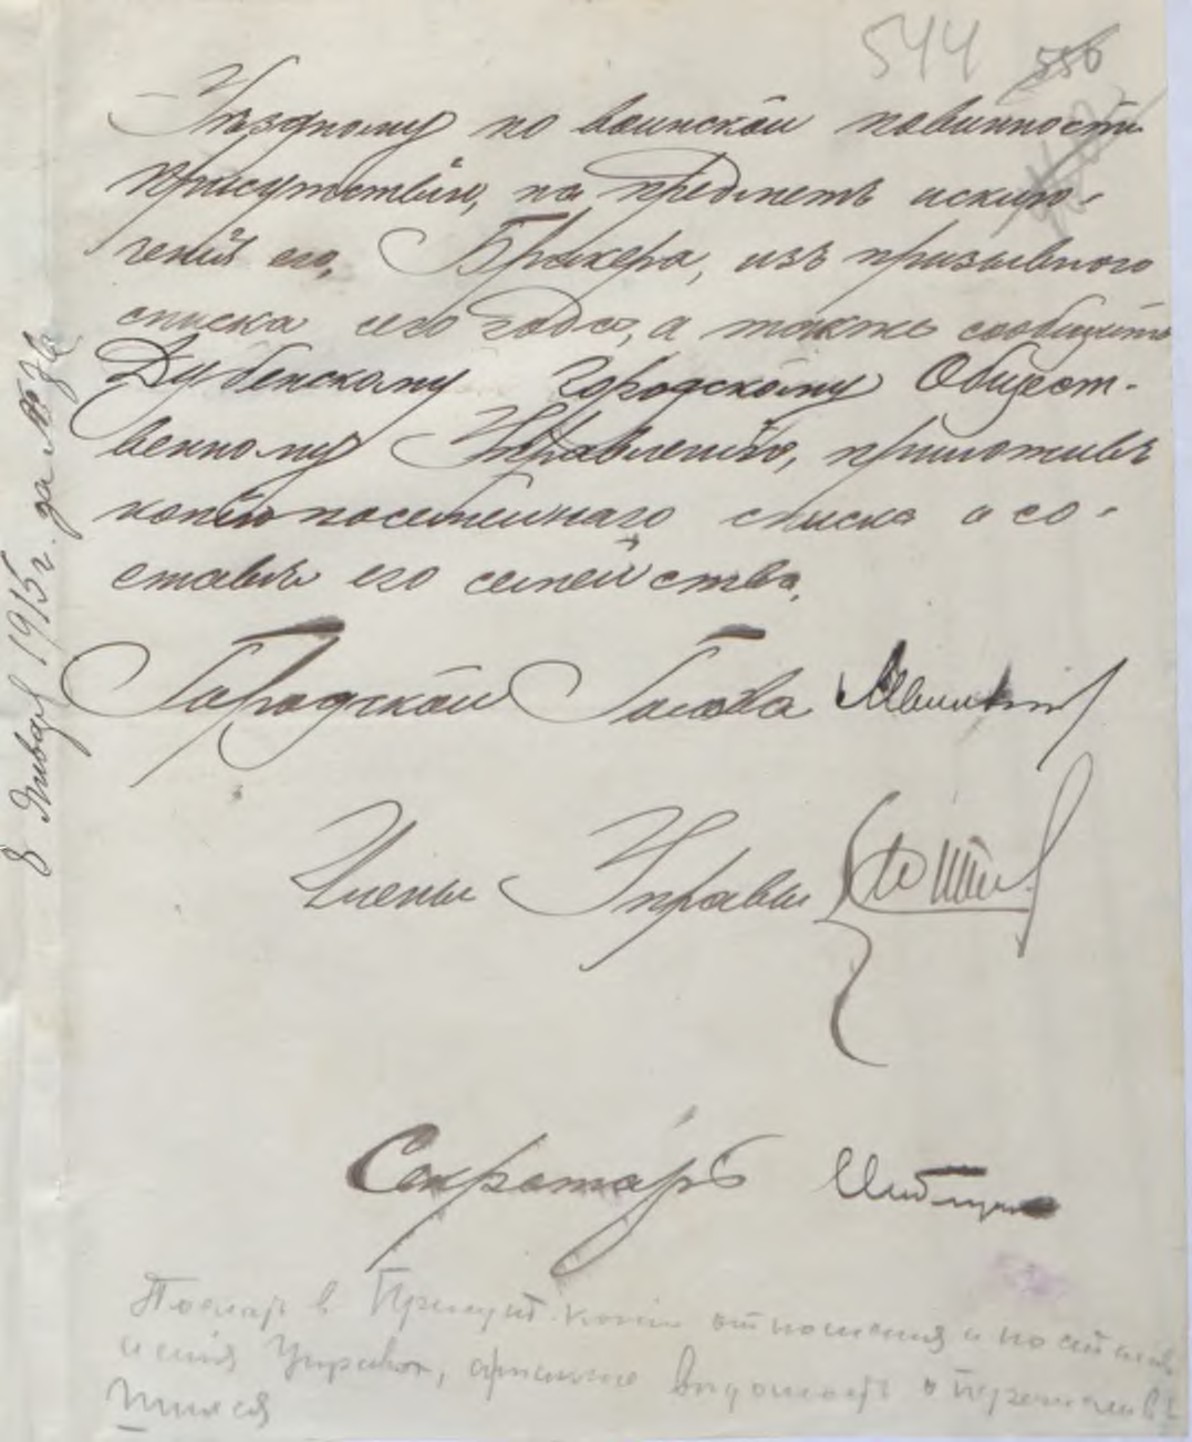 544 556
Уѣздному по воинской повинности
присутствію, на предметъ исклю-
ченія его, Бракера, изъ призывного
списка его года, а также сообщить
Дубенскому Городскому Общест-
венному Управленію, приложивъ
копію посемейнаго списка о со-
ставѣ его семейства.
Городской Голова
Члены Управы
Секретарь
8 Января 1915 г. за №
в Присут. копію отношенія и постанов
ленія Управы, а также ведомость о